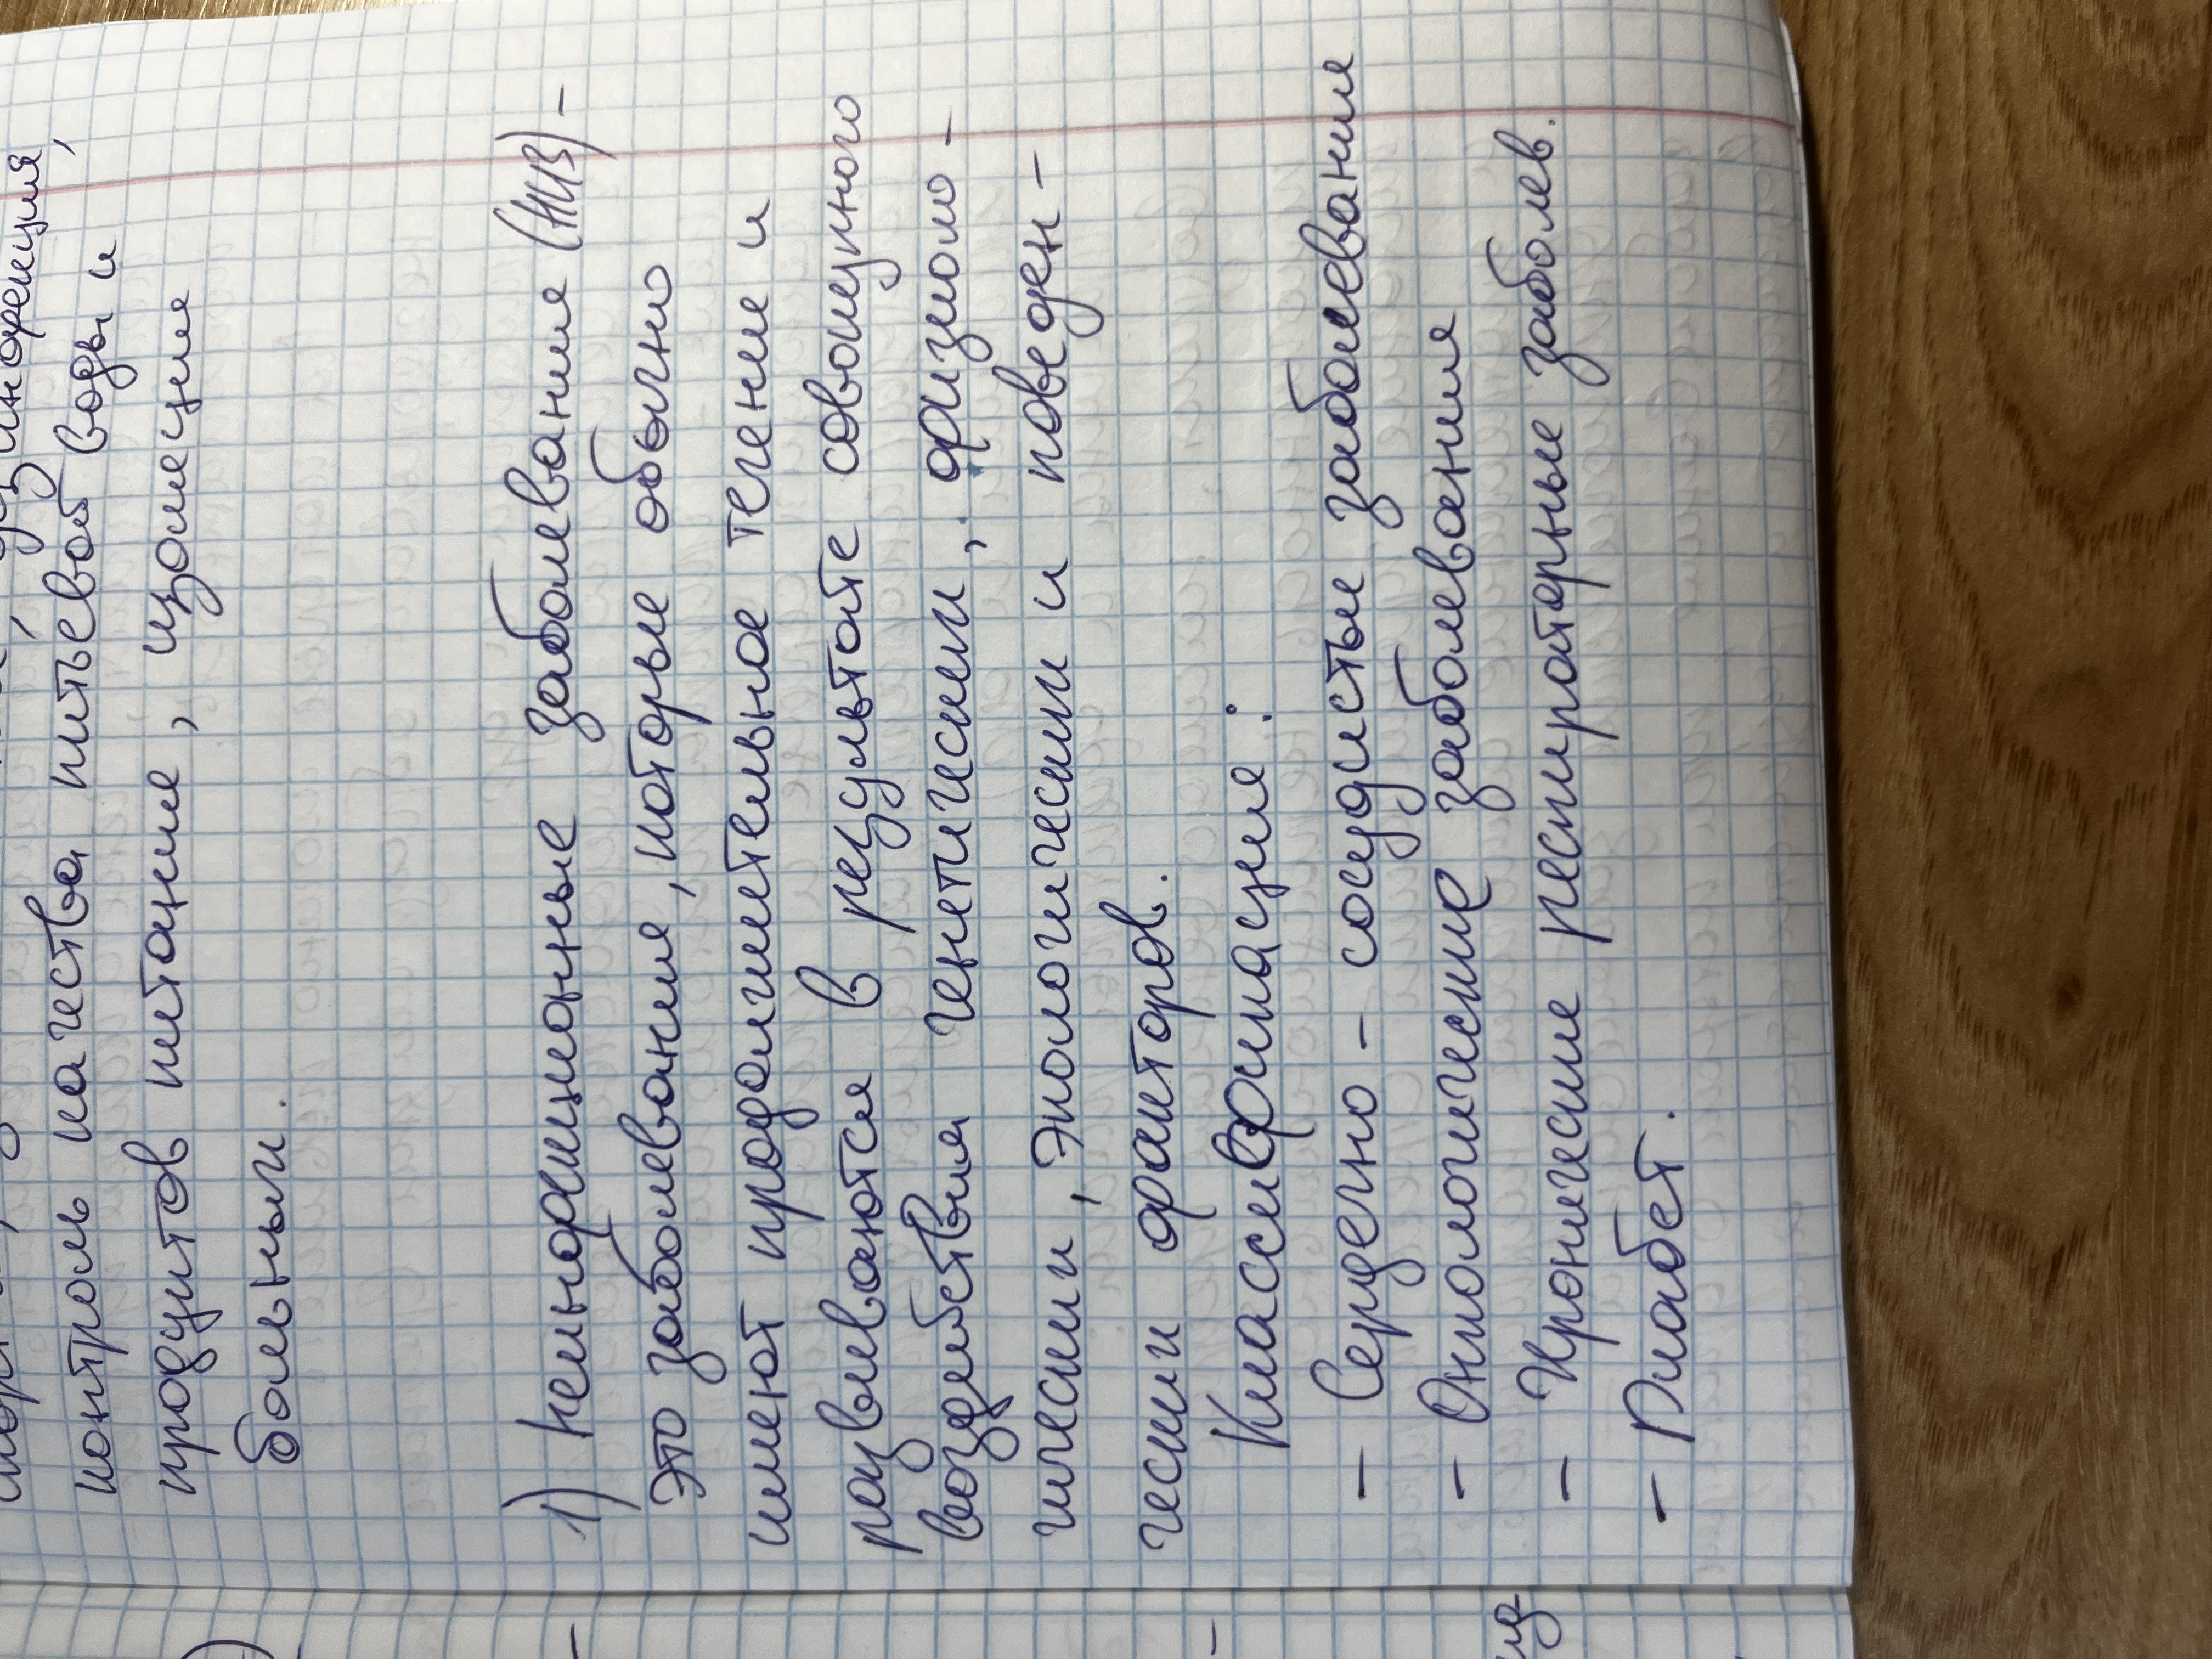 дезинфекция,
контроль качества питьевой воды и
продуктов питание, изоляция
больных.
1) Неинфекционные заболевания (НИЗ) -
это заболевания, которые обычно
имеют продолжительное течение и
развиваются в результате совокупного
воздействия генетически, физиоло-
гически, экологически и поведен-
чески факторов.
Классификация:
- Сердечно - сосудистые заболевания
- Онкологические заболевания
- Хронические респираторные заболев.
- Диабет.